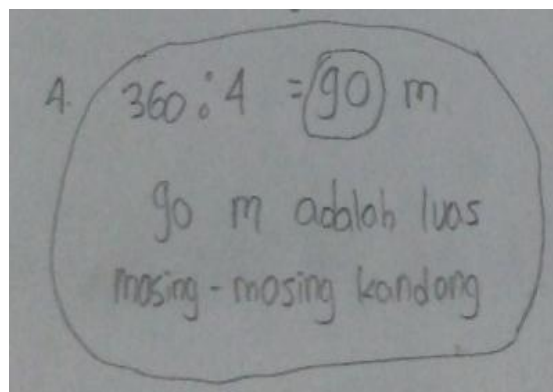 4. 360 : 4 = 90 m
90 m adalah luas
masing-masing kandang